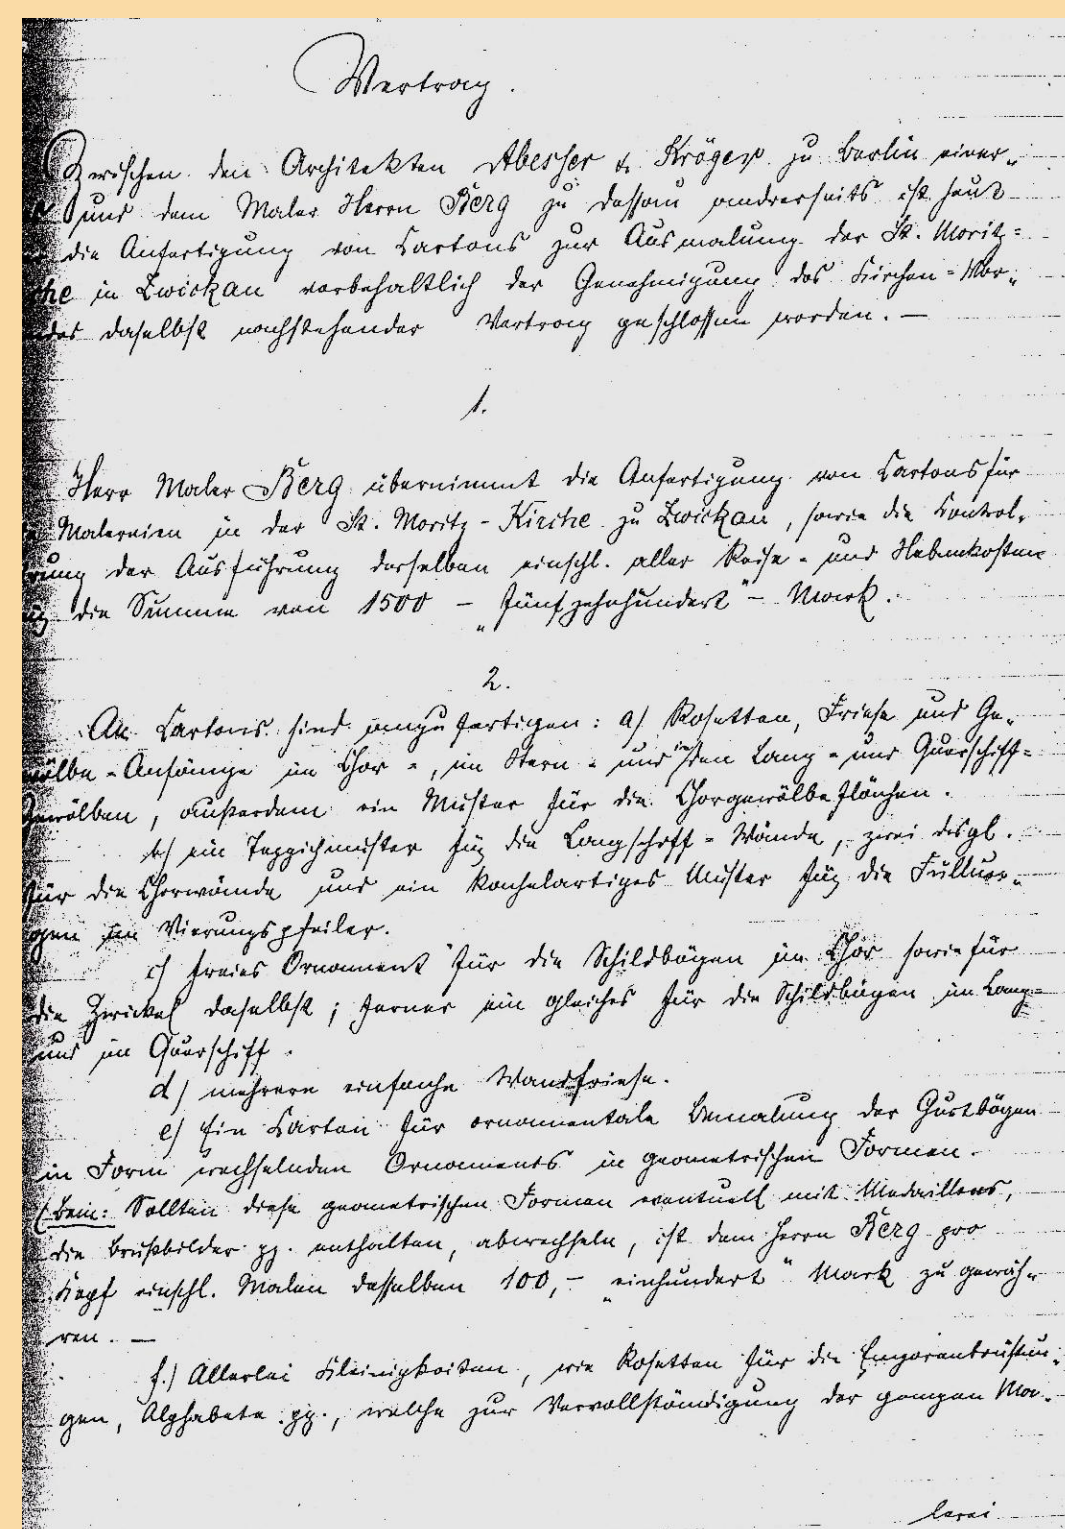 Vertrag.
Zwischen den Architekten Abesser & Kröger zu Berlin einer-
und dem Maler Herrn Berg zu Dessau andrerseits ist heut
die Anfertigung von Cartons zur Ausmalung der St. Moritz-
che in Zwickau vorbehaltlich der Genehmigung des Kirchen-Vor-
des daselbst nachstehender Vertrag geschlossen worden. —
1.
Herr Maler Berg übernimmt die Anfertigung von Cartons für
Malereien in der St. Moritz-Kirche zu Zwickau, sowie die Control-
rung der Ausführung derselben einschl. aller Reise- und Nebenkosten
die Summe von 1500 – „Fünfzehnhundert" – Mark.
2.
An Cartons sind anzufertigen: a) Rosetten, Friese und Ge-
wölbe-Anfänge im Chor-, im Stern- und den Lang- und Querschiff-
gewölben, außerdem ein Muster für die Chorgewölbeflächen.
b) ein Teppichmuster für die Langschiff-Wände, zwei desgl.
für die Chorwände und ein kachelartiges Muster für die Füllun-
gen im Vierungspfeiler.
c) freies Ornament für die Schildbögen im Chor sowie für
die Zwickel daselbst; ferner ein gleiches für die Schildbögen im Lang-
und im Querschiff.
d) mehrere einfache Wandfriese.
e) Ein Carton für ornamentale Bemalung der Gurtbögen
in Form wechselnden Ornaments in geometrischen Formen.
(Bem: Sollten diese geometrischen Formen eventuell mit Medaillons,
die Brustbilder pp. enthalten, abwechseln, ist dem Herrn Berg pro
Kopf einschl. Malen desselben 100,– „einhundert" Mark zu gewäh-
ren. —
f.) Allerlei Kleinigkeiten, wie Rosetten für die Emporenbrüstun-
gen, Alphabete pp., welche zur Vervollständigung der ganzen Ma-
lerei